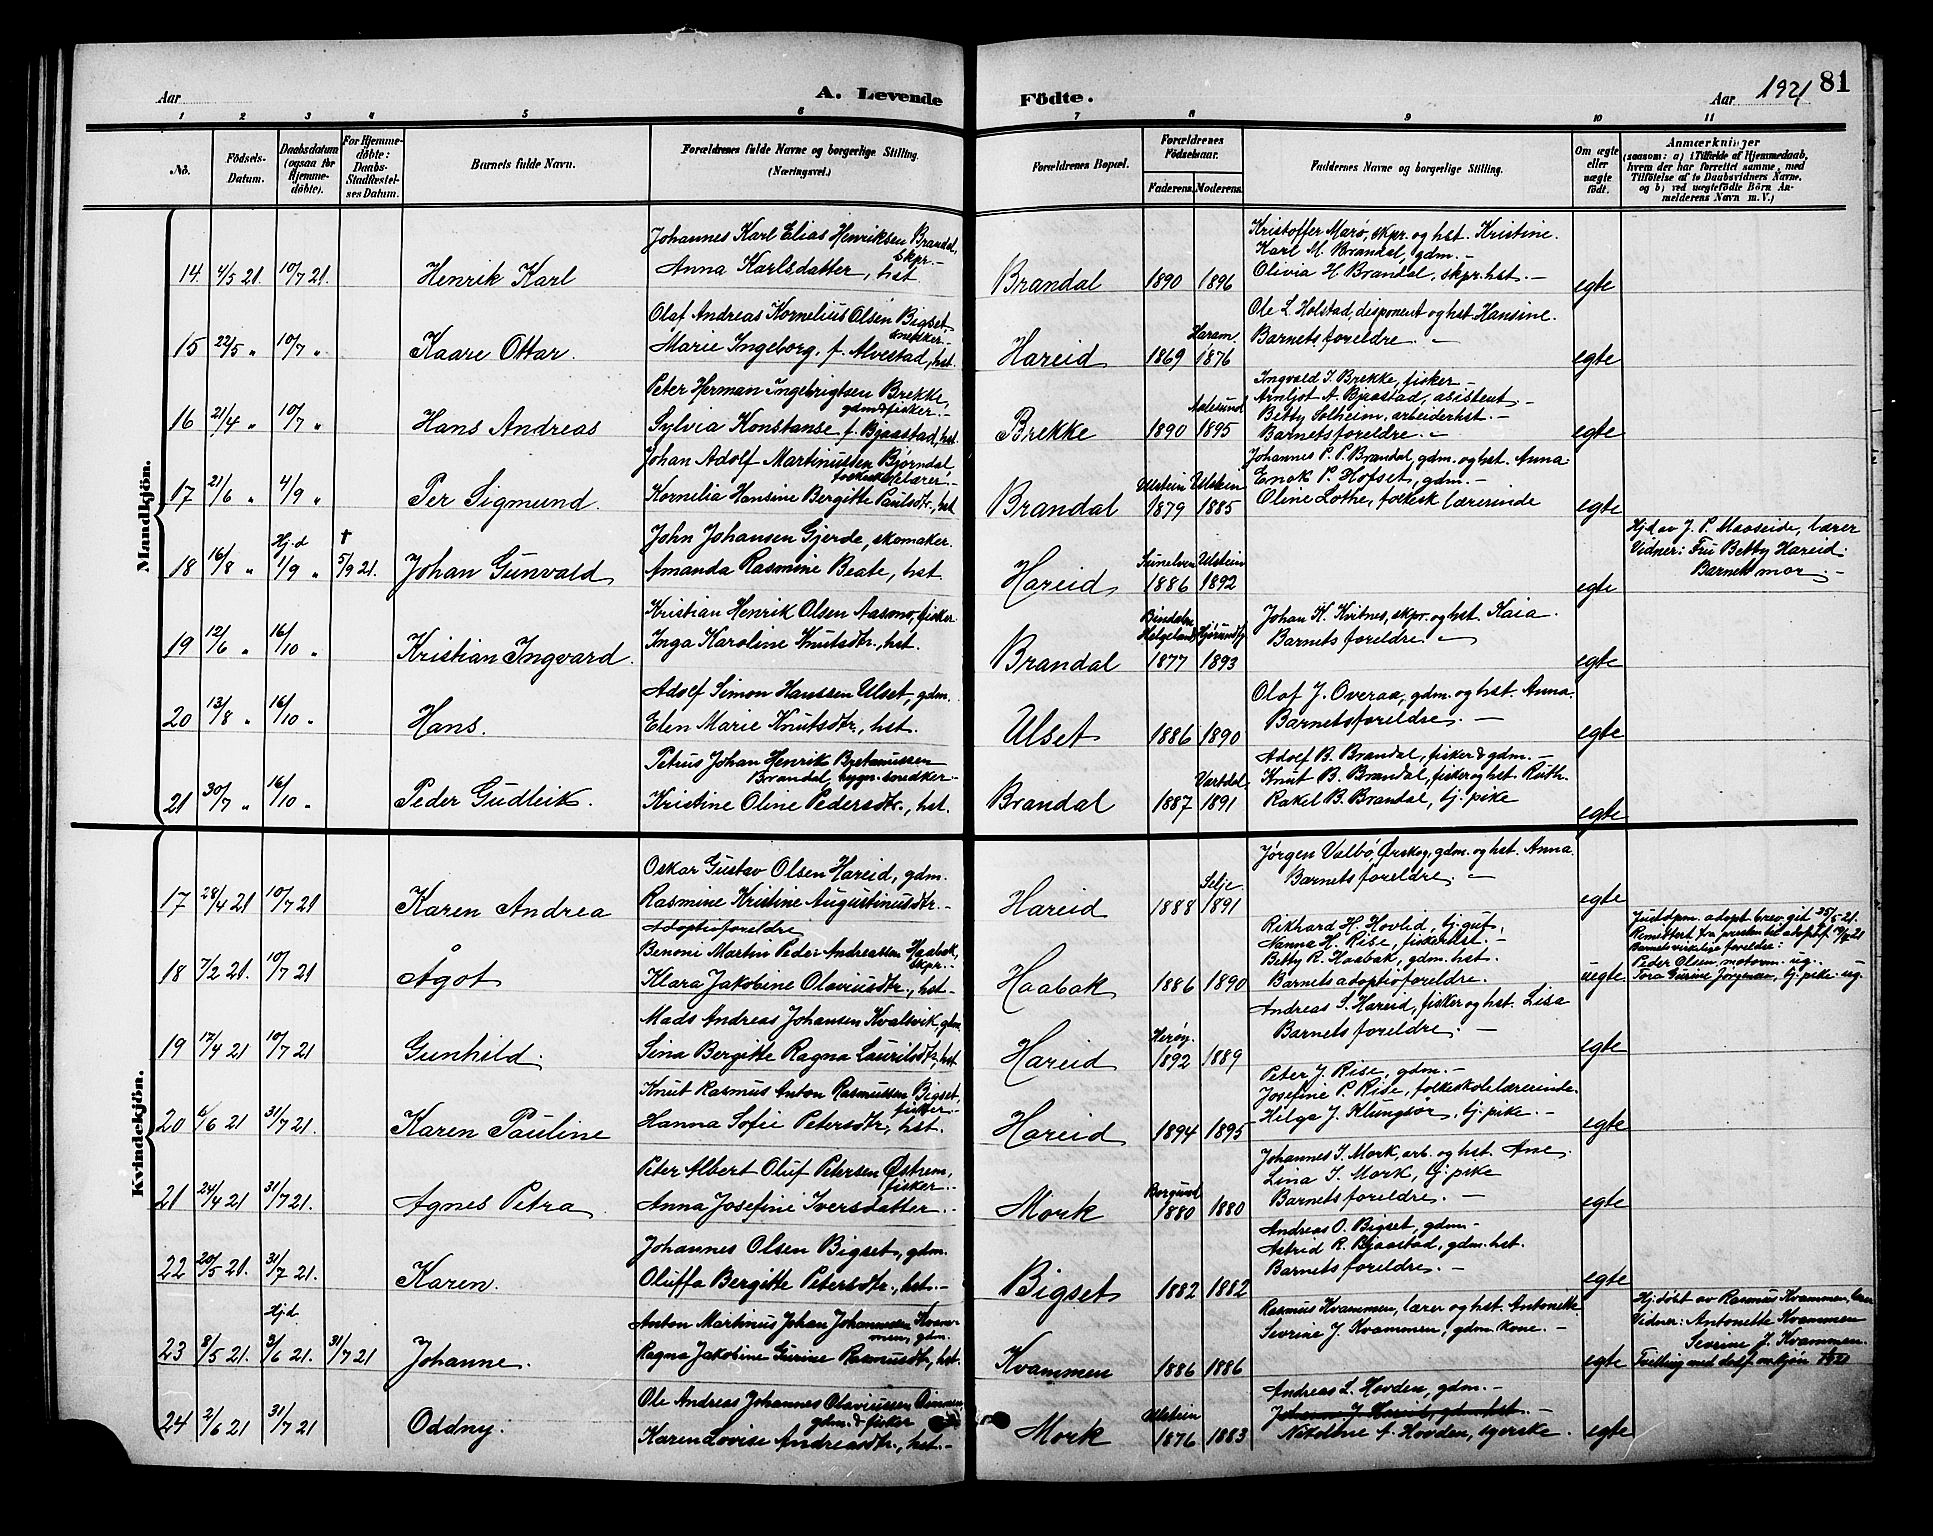 Aar
A. Levende
Födte.
Aar 1921
81
1 2 3 4 5 6 7 8 9 10 11
No.
Födsels-Datum.
Daabsdatum (ogsaa for Hjemmedöbte).
For Hjemmedöbte: Daabs-Stadfæstelses Datum.
Barnets fulde Navn.
Forældrenes fulde Navne og borgerlige Stilling. (Næringsvei.)
Forældrenes Bopæl.
Forældrenes Födselsaar.
Faderens. Moderens.
Faddernes Navne og borgerlige Stilling.
Om ægte eller uægte födt.
Anmærkninger
(saasom: a) i Tilfælde af Hjemmedaab,
hvem der har forrettet samme, med
Tilföielse af to Daabsvidners Navne,
og b) ved uægtefödte Börn An-
melderens Navn m. V.)
Mandkjön.
Johannes Karl Elias Henriksen Brandal, skpr. -
14. 4/5 21. 10/7 21. Henrik Karl
Anna Karlsdatter, hst
Brandal 1890 1896
Kristoffer Marø, skpr. og hst. Kristine.
Karl M. Brandal, gdm. -
Olivia H. Brandal, skpr. hst. -
egte
Olaf Andreas Kornelius Olsen Bigset, snekker. -
15 22/5 " 10/7 " Kaare Ottar.
Marie Ingeborg, f. Alvestad, hst.
Hareid 1869 Haram 1876
Ole L Holstad, disponent og hst Hansine.
Barnets foreldre. -
egte
Peter Herman Ingebrigtsen Brekke, gdm & fisker. -
16 21/4 " 10/7 " Hans Andreas
Sylvia Konstanse f. Bjaastad, hst.
Brekke 1890 Aalesund 1895
Ingvald I. Brekke, fisker -
Arnljot A. Bjaastad, asistent -
Betty Solheim, arbeiderhst. -
Barnets foreldre. -
egte
Johan Adolf Martinussen Bjørndal, folkeskolelærer. -
17 21/6 " 4/9 " Per Sigmund.
Kornelia Hansine Bergitte Paulsdtr., hst
Brandal Ulstein 1879 Ulstein 1885
Johannes P. P. Brandal, gdm. og hst. Anna.
Enok P. Hofset, gdm. -
Oline Lothe, folkesk lærerinde
egte
John Johansen Gjerde, skomaker.
18 16/8 " Hj.d 1/9 " † 5/9 21. Johan Gunvald
Amanda Rasmine Beate, hst.
Hareid Sunelven 1886 Ulstein 1892
egte
Hjd av J. P. Maaseide, lærer
Vidner: Fru Betty Hareid.
Barnets mor. -
Kristian Henrik Olsen Aasmo, fisker
19 12/6 " 16/10 " Kristian Ingvard.
Inga Karoline Knutsdtr., hst.
Brandal Bindalen Helgeland 1877 Hjørundfj 1893
Johan K. Kvitnes, skpr. og hst. Kaia.
Barnets foreldre. -
egte
Adolf Simon Hanssen Ulset, gdm.
20 13/8 " 16/10 " Hans.
Elen Marie Knutsdtr., hst.
Ulset 1886 1890
Olaf J. Overaa, gdm. og hst. Anna.
Barnets foreldre. -
egte
Petrus Johan Henrik
Brandal, bygn. snedker. -
21 30/7 " 16/10 " Peder Gudleik.
Kristine Oline Pedersdtr., hst.
Brandal 1887 Vartdal 1891
Adolf B. Brandal, fisker & gdm. -
Knut B. Brandal, fisker og hst. Ruth.
Rakel B. Brandal, tj. pike
egte
Kvindekjön.
Oskar Gustav Olsen Hareid, gdm.
17 28/4 21 10/7 21 Karen Andrea
Rasmine Kristine Augustinusdtr. -
Hareid 1888 Selje 1891
Jørgen Valbø, Ørskog, gdm. og hst. Anna.
Barnets foreldre. -
egte
Adoptivforeldre
Benoni Martin Peder Andreassen Haabak, skpr. -
18 7/2 21. 10/7 21 Ågot
Klara Jakobine Olaviusdtr., hst -
Haabak 1886 1890
Rikhard H. Hovlid, tj. gut, -
Nanna H. Rise, fiskerhst. -
Betty R. Haabak, gdm. hst.
Barnets adoptivforeldre.
uegte.
Justdpm. adopt. brev, git 25/5-21.
Remittert fra presten til adoptf.
Barnets virkelige foreldre:
Peder Olsen, motorm. ug. -
Tora Gurine Jørgensen, tj. pike. ug.
Mads Andreas Johansen Kvalsvik, gdm.
19 17/4 21 10/7 21 Gunhild.
Sina Bergitte Ragna Lauritsdtr, hst
Hareid Herøy. 1892 1889
Andreas S. Hareid, fisker og hst. Lisa
Barnets foreldre. -
egte
Knut Rasmus Anton Rasmussen Bigset, fisker. -
20 6/6 21 31/7 21. Karen Pauline
Hanna Sofie Petersdtr., hst.
Hareid 1894 1895
Peter J. Rise, gdm. -
Josefine P. Rise, folkeskolelærerinde.
Helga J. Klungsør, tj. pike. -
egte
Peter Albert Oluf Petersen Østrem, fisker. -
21 24/4 21 31/7 21. Agnes Petra
Anna Josefine Iversdatter. -
Mork Borgund 1880 1880
Johannes I. Mork, arb. og hst. Ane.
Lina I. Mork, tj. pike
Barnets foreldre. -
egte
Johannes Olsen Bigset, gdm.
22 20/5 21. 31/7 21. Karen.
Oluffa Bergitte Petersdtr., hst. -
Bigset 1882 1882
Andreas O. Bigset, gdm. -
Astrid R. Bjaastad, gdm. hst.
Barnets foreldre. -
egte
Anton Martinus Johan Johannessen Kvammen, gdm.
23 8/5 21. Hj.d. 3/6 21. 31/7 21 Johanne.
Ragna Jakobine Gurine Rasmusdtr, hst.
Kvammen 1886 1886
Rasmus Kvammen, lærer og hst. Antonette
Sevrine J. Kvammen, gdm. kone. -
egte
Hj. døbt av Rasmus Kvammen, lærer
Vidner: Antonette Kvammen
Sevrine J. Kvammen.
Tvilling med dødf. m.kjøn
Ole Andreas Johannes Olaviussen
gdm. & fisker
24 2/6 21 31/7 21 Oddny.
Karen Lovise Andreasdtr., hst. -
Mork Ulstein 1876 1883
Andreas L. Hovden, gdm. -
Nikoline A. Hovden, syerske.
egte